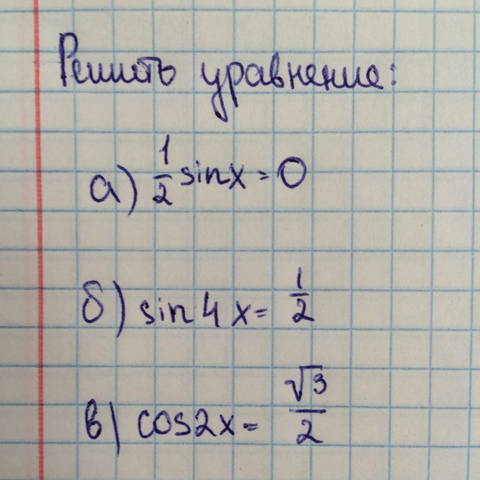 Решить уравнение:
а) 1/2 sinx = 0
б) sin4x = 1/2
в) cos2x = √3/2